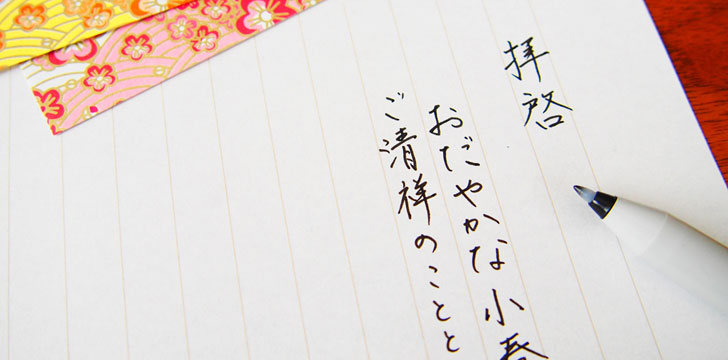 拝啓
おだやかな小春
ご清祥のことと